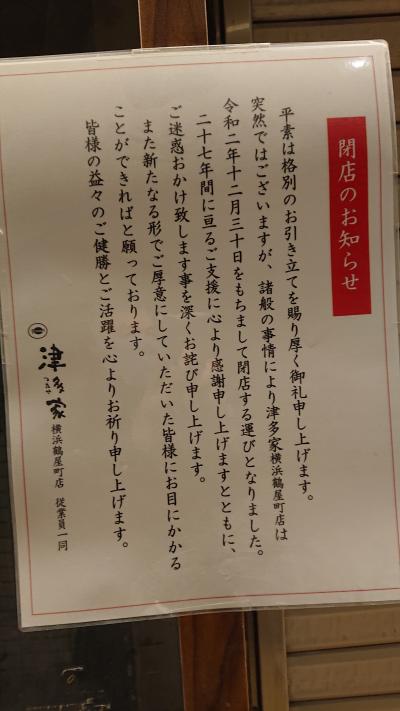 閉店のお知らせ
平素は格別のお引き立てを賜り厚く御礼申し上げます。
突然ではございますが、諸般の事情により津多家横浜鶴屋町店は
令和二年十二月三十日をもちまして閉店する運びとなりました。
二十七年間に亘るご支援に心より感謝申し上げますとともに、
ご迷惑おかけ致します事を深くお詫び申し上げます。
また新たなる形でご厚意にしていただいた皆様にお目にかかる
ことができればと願っております。
皆様の益々のご健勝とご活躍を心よりお祈り申し上げます。
津多家 横浜鶴屋町店 従業員一同